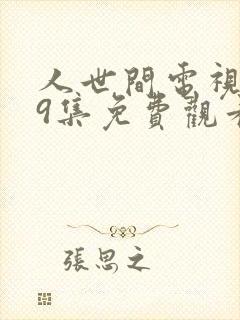 人世間電視
9集免費觀看
張思之